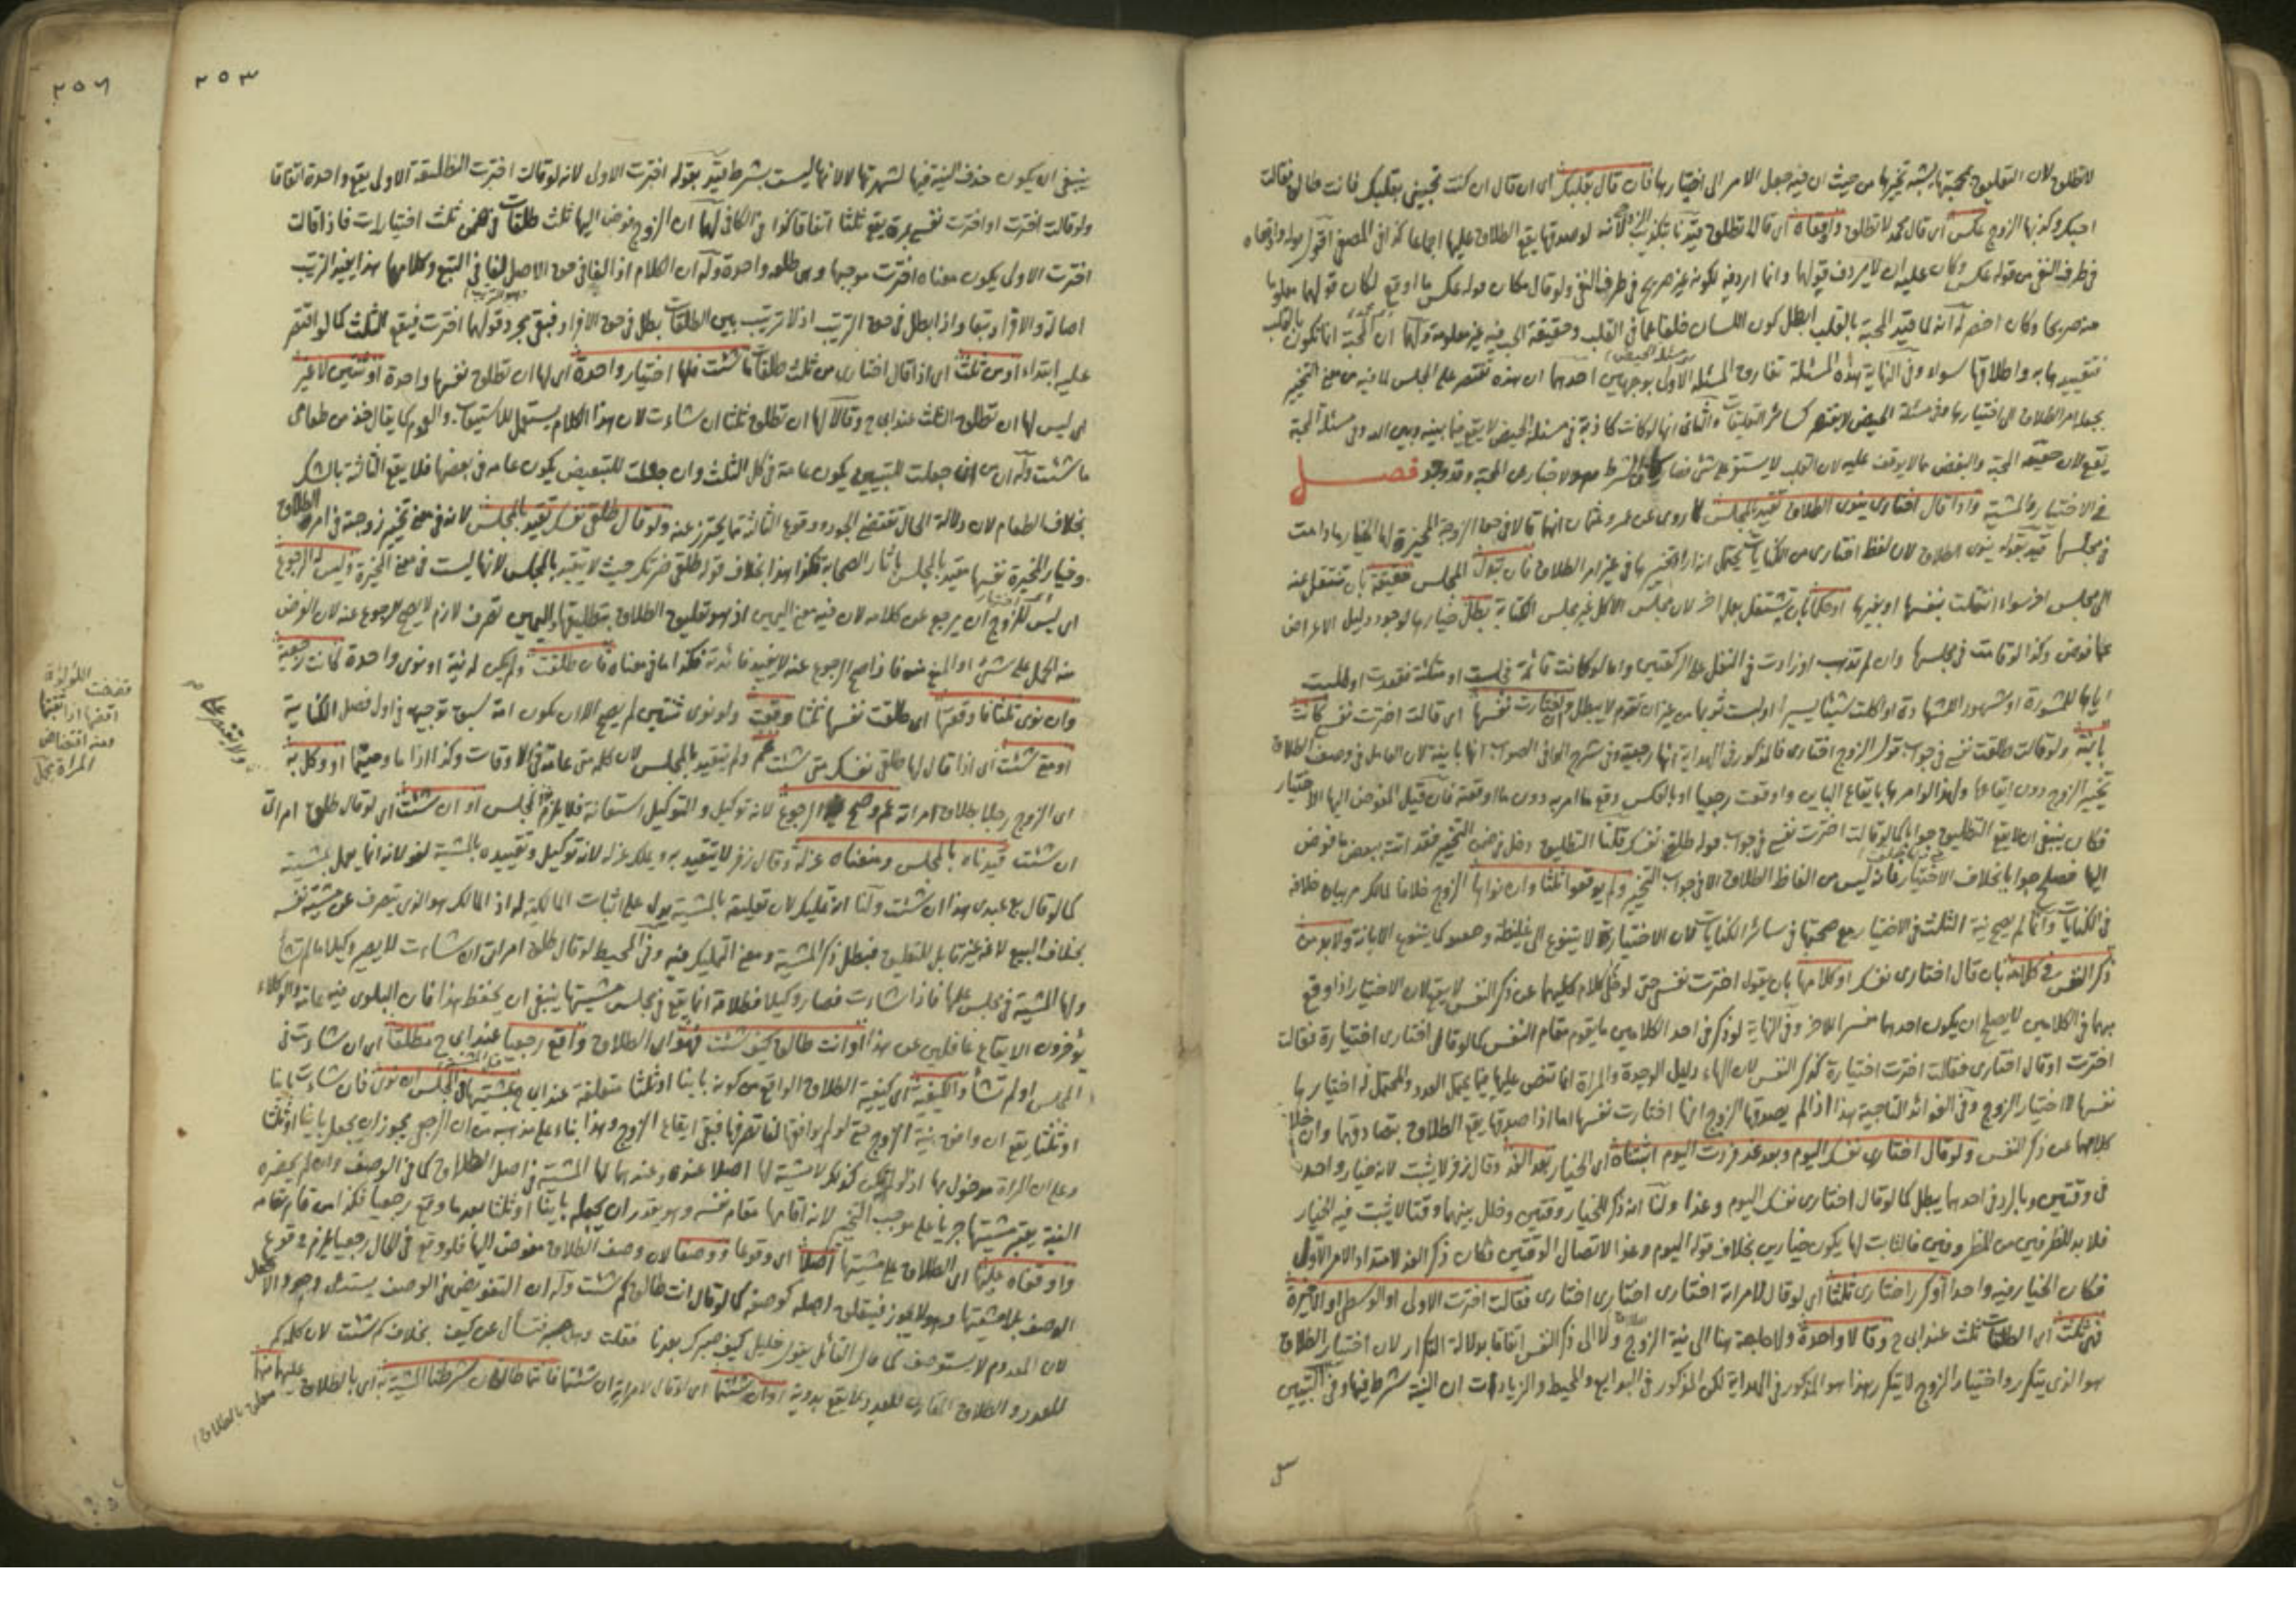 لا تطلق لان التعليق بمحبتها يشبه تخييرها من حيث ان فيه جعل الامر الى اختيارها فان قال بقلبك اى ان قال ان كنت تحبيني بقلبك فانت طالق فقالت
احبك وكذبها الزوج عكس اى قال محمد لا تطلق واوقعاه اى قالا تطلق قيدنا بتكذيب الزوج لانه لو صدقها يقع الطلاق عليها اجماعا كذا في المصفى اقول
في طرف النفي من قوله عكس وكان عليه ان لا يردف قولهما وانما اردفه لكونه غير صريح في طرف النفي ولو قال مكان قوله عكس ما اوقع لكان قولهما معلوما
منه صريحا وكان اخصر له انه لما قيد المحبة بالقلب ابطل كون اللسان خلفا عما في القلب وحقيقة الحب فيه غير معلومة ولهما ان المحبة انما تكون بالقلب
فتقييدها به واطلاقها سواء وفي النهاية هذه المسئلة تفارق المسئلة الاولى بوجهين احدهما ان هذه تقتصر على المجلس لما فيه من معنى التخيير
بجعله امر الطلاق الى اختيارها وفي مسئلة الحيض لا يقتصر كسائر التعليقات والثاني انها لو كانت كاذبة في مسئلة الحيض لا يقع فيما بينه وبين الله وفي مسئلة المحبة
يقع لان حقيقة المحبة والبغض مما لا يوقف عليه لان القلب لا يستقر على شئ فصار الشرط هو الاخبار عن المحبة وقد وجد فصل
في الاختيار والمشية واذا قال اختارى ينوى الطلاق تقيد بالمجلس لما روى عن عمر وعثمان انهما قالا في حق الزوجة المخيرة لها الخيار ما دامت
في مجلسها قيد بقوله ينوى الطلاق لان لفظ اختارى من الكنايات يحتمل انه اراد تخييرها في غير امر الطلاق فان تبدل المجلس حقيقة بان تنتقل عنه
الى مجلس اخر سواء انتقلت بنفسها او بغيرها او حكما بان تشتغل بعمل اخر لان مجلس الاكل غير مجلس الكتابة بطل خيارها لوجود دليل الاعراض
عما فوض وكذا لو قامت في مجلسها وان لم تذهب او زادت في النفل على الركعتين واما لو كانت قائمة فجلست او متكئة فقعدت او طلبت
اباها للمشورة او شهودا للشهادة او اكلت شيئا يسيرا او لبست ثوبا من غير ان تقوم لا يبطل وان اختارت نفسها اى قالت اخترت نفسي كانت
باينة ولو قالت طلقت نفسي في جواب قول الزوج اختارى فالمذكور في الهداية انها رجعية وفي شرح الوافي الصواب انها باينة لان العامل في وصف الطلاق
تخيير الزوج دون ايقاعها ولهذا لو امرها بايقاع الباين واوقعت رجعيا او بالعكس وقع ما امر به دون ما اوقعته فان قيل المفوض اليها الاختيار
فكان ينبغي ان لا يقع التطليق جوابا كما لو قالت اخترت نفسي في جواب قوله طلقي نفسك قلنا التطليق دخل في ضمن التخيير فقد اتت ببعض ما فوض
اليها فصلح جوابا بخلاف الاختيار فانه ليس من الفاظ الطلاق الا في جواب التخيير ولم يوقعوا ثلثا وان نواها الزوج خلافا لمالك مر بيان خلافه
في الكنايات وانما لم يصح نية الثلث في الاختيار مع صحتها في سائر الكنايات لان الاختيار لا يتنوع الى غليظة وخفيفة كما يتنوع الابانة ولا بد من
ذكر النفس في كلامه بان قال اختارى نفسك او كلامها بان يقول اخترت نفسي حتى لو خلا كلام كليهما عن ذكر النفس لا يقع لان الاختيار اذا وقع
مبهما في الكلامين لا يصلح ان يكون احدهما مفسرا للاخر وفي النهاية لو ذكر في احد الكلامين ما يقوم مقام النفس كما لو قال اختارى اختيارة فقالت
اخترت او قال اختارى فقالت اخترت اختيارة كذكر النفس لان الهاء دليل الوحدة والمراة انما تنص عليها فيما يحتمل العدد والمحتمل له اختيارها
نفسها لا اختيار الزوج وفي الفوائد التاجية هذا اذا لم يصدقها الزوج انها اختارت نفسها اما اذا صدقها يقع الطلاق بتصادقهما وان خلا
كلامهما عن ذكر النفس ولو قال اختارى نفسك اليوم وبعد غد فردت اليوم اثبتناه اى الخيار بعد الغد وقال زفر لا يثبت لانه خيار واحد
في وقتين وبالرد في احدهما يبطل كما لو قال اختارى نفسك اليوم وغدا ولنا انه ذكر للخيار وقتين وخلل بينهما وقتا لا يثبت فيه الخيار
فلا بد للظرفين من المظروفين فالثابت لها يكون خيارين بخلاف قوله اليوم وغدا لاتصال الوقتين فكان ذكر الغد لامتداد الامر الاول
فكان الخيار فيه واحدا او كرر اختارى ثلثا اى لو قال لامراته اختارى اختارى اختارى فقالت اخترت الاولى او الوسطى او الاخيرة
فهي ثلث اى الطلقات ثلث عند ابى ح وقالا واحدة ولا حاجة هنا الى نية الزوج ولا الى ذكر النفس اتفاقا بدلالة التكرار لان اختيار الطلاق
هو الذى يتكرر واختيار الزوج لا يتكرر هذا هو المذكور في الهداية لكن المذكور في البدايع والمحيط والزيادات ان النية شرط فيها وفي التبيين
٢٥٣
ينبغي ان يكون حذف النية فيها لشهرتها لا لانها ليست بشرط قيد بقوله اخترت الاول لانه لو قالت اخترت التطليقة الاولى يقع واحدة اتفاقا
ولو قالت اخترت او اخترت نفسي بمرة يقع ثلثا اتفاقا كذا في الكافي لهما ان الزوج فوض اليها ثلث طلقات في ضمن ثلث اختيارات فاذا قالت
اخترت الاولى يكون معناه اخترت موجبها وهي طلقة واحدة وله ان الكلام اذا لغا في حق الاصل لغا في التبع وكلامها هذا يفيد الترتيب
اصالة والافراد تبعا واذا بطل في حق الترتيب اذ لا ترتيب بين الطلقات بطل في حق الافراد فبقي مجرد قولها اخترت فيقع الثلث كما لو اقتصر
عليه ابتداء او من ثلث اى اذا قال اختارى من ثلث طلقات ما شئت فلها اختيار واحدة اى لها ان تطلق نفسها واحدة او ثنتين لا غير
اى ليس لها ان تطلق الثلث عند ابى ح وقالا لها ان تطلق ثلثا ان شاءت لان هذا الكلام يستعمل للاستيعاب والعموم كما يقال خذ من طعامى
ما شئت وله ان من ان جعلت للتبيين يكون عامة في كل الثلث وان جعلت للتبعيض يكون عامه في بعضها فلا يقع الثالثة بالشك
بخلاف الطعام لان دلالة الحال تقتضي الجود ووقوع الثالثة مما يحترز عنه ولو قال طلقي نفسك تقيد بالمجلس لانه في معنى تخيير زوجته في امر الطلاق
وخيار المخيرة نفسها مقيد بالمجلس باثار الصحابة فكذا هذا بخلاف قوله طلقي ضرتك حيث لا يتقيد بالمجلس لانها ليست في معنى المخيرة وليس له الرجوع
اى ليس للزوج ان يرجع عن كلامه لان فيه معنى اليمين اذ هو تعليق الطلاق بتطليقها واليمين تصرف لازم لا يصح الرجوع عنه لان الغرض
منه الحمل على شئ او المنع عنه فاذا صح الرجوع عنه لا يفيد فائدته فكذا ما في معناه فان طلقت ولم يكن له نية او نوى واحدة كانت رجعية
وان نوى ثلثا فاوقعتها اى طلقت نفسها ثلثا وقعت ولو نوى ثنتين لم يصح الا ان يكون امة لسبق توجيهه في اول فصل الكناية
او متى شئت اى اذا قال لها طلقي نفسك متى شئت عم ولم يتقيد بالمجلس لان كلمة متى عامة في الاوقات وكذا اذا ما وحيثما او وكل به
اى الزوج رجلا بطلاق امراته عم وصح الرجوع لانه توكيل والتوكيل استعانة فلا يلزم المجلس او ان شئت اى لو قال طلق امراتى
ان شئت قيدناه بالمجلس ومنعناه عزله وقال زفر لا يتقيد به ويملك عزله لانه توكيل وتقييده بالمشية لغو لانه انما يعمل بمشيته
كما لو قال بع عبدى هذا ان شئت ولنا انه تمليك لان تعليقه بالمشية يدل على اثبات المالكية له اذ المالك هو الذى يتصرف عن مشية نفسه
بخلاف البيع لانه غير قابل للتعليق فبطل ذكر المشية ومعنى التمليك فيه وفي المحيط لو قال طلق امراتى ان شاءت لا يصير وكيلا ما لم تشأ
ولها المشية في مجلس علمها فاذا شاءت فصار وكيلا فطلاقه انما يقع في مجلس مشيتها ينبغي ان يحفظ هذا فان البلوى فيه عامة والوكلاء
يؤخرون الايقاع غافلين عن هذا او انت طالق كيف شئت فهو اى الطلاق واقع رجعيا عند ابى ح مطلقا اى ان شاءت في
المجلس او لم تشأ والكيفية اى كيفية الطلاق الواقع من كونه باينا او ثلثا متعلقة عند ابى ح بمشيتها في المجلس ان نوى فان شاءت باينا
او ثلثا يقع ان وافق نية الزوج حتى لو لم يوافقها لغا تصرفها فبقي ايقاع الزوج وهذا بناء على مذهبه من ان الرجعي يجوز ان يجعل باينا او ثلثا
وعلى ان المراة مدخول بها اذ لو لم يكن كذلك لا مشية لها اصلا عنده وعندهما لها المشية في اصل الطلاق كما في الوصف وان لم يحضره
النية يعتبر مشيتها جريا على موجب التخيير لانه اقامها مقام نفسه وهو يقدر ان يجعله باينا او ثلثا بعد ما وقع رجعيا فكذا من قام مقامه
واوقفاه عليها اى الطلاق على مشيتها اصلا اى وقوعا ووصفا لان وصف الطلاق مفوض اليها فلو وقع في الحال رجعيا لزم وقوع
الوصف بلا مشيتها وهو لا يجوز فيتعلق اصله كوصفه كما لو قال انت طالق كم شئت وله ان التفويض في الوصف يستدعى وجود الاصل
لان المعدوم لا يستوصف كما قال القائل يقول خليلي كيف صبرك بعدنا فقلت وهل صبر فتسأل عن كيف بخلاف كم شئت لان كلمة كم
للعدد والطلاق المقارن للعدد لا يقع بدونه او ان شئتما اى لو قال لامراتيه ان شئتما فانتما طالقان شرطنا المشية اى بالطلاق عليهما منهما
ولا يقتصر على